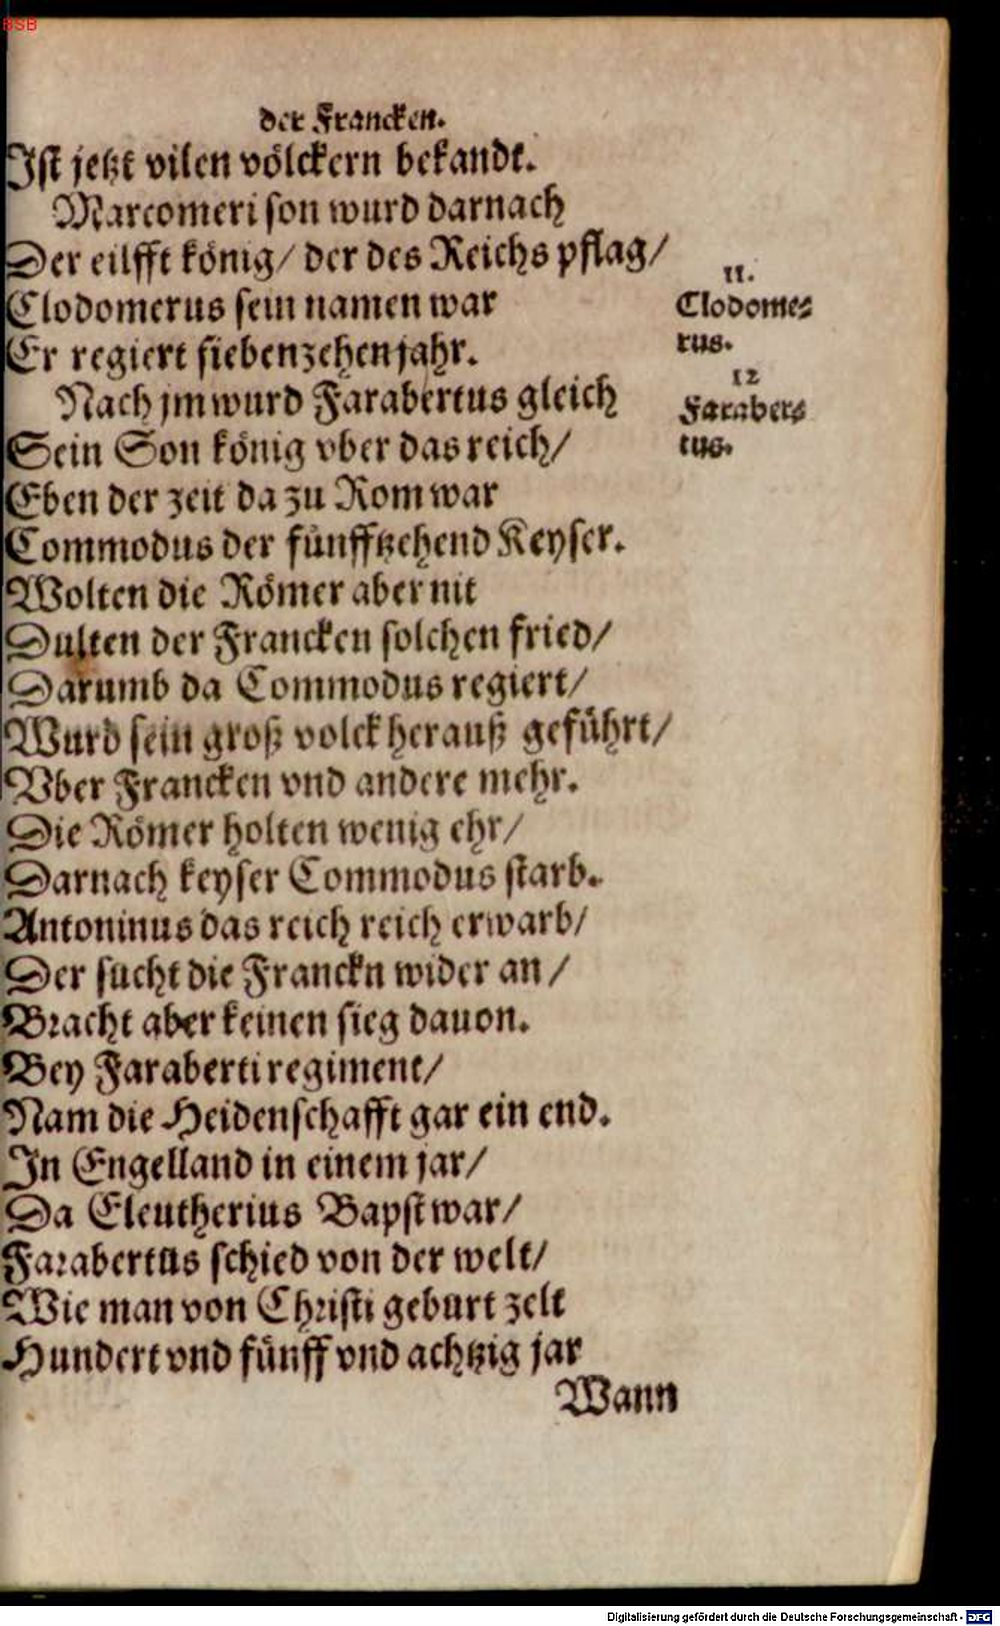 BSB
der Francken.
Ist jetzt vilen völckern bekandt.
Marcomeri son wurd darnach
Der eilfft könig/ der des Reichs pflag/
11.
Clodomerus sein namen war
Clodome⸗
Er regiert siebenzehen jahr.
rus.
12
Nach jm wurd Farabertus gleich
Faraber⸗
Sein Son könig vber das reich/
tus.
Eben der zeit da zu Rom war
Commodus der fünfftzehend Keyser.
Wolten die Römer aber nit
Dulten der Francken solchen fried/
Darumb da Commodus regiert/
Wurd sein groß volck herauß geführt/
Vber Francken vnd andere mehr.
Die Römer holten wenig ehr/
Darnach keyser Commodus starb.
Antoninus das reich reich erwarb/
Der sucht die Franckn wider an/
Bracht aber keinen sieg dauon.
Bey Faraberti regiment/
Nam die Heidenschafft gar ein end.
In Engelland in einem jar/
Da Eleutherius Bapst war/
Farabertus schied von der welt/
Wie man von Christi geburt zelt
Hundert vnd fünff vnd achtzig jar
Wann
Digitalisierung gefördert durch die Deutsche Forschungsgemeinschaft - DFG